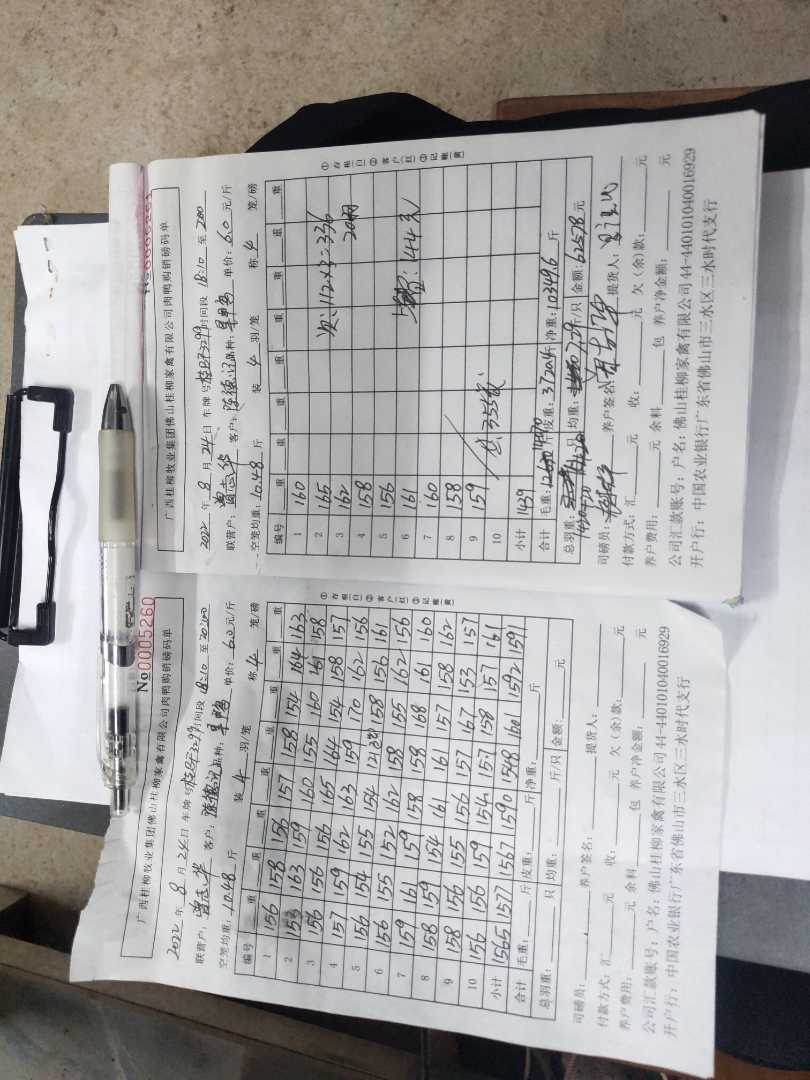 №0005260
广西桂柳牧业集团佛山桂柳家禽有限公司肉鸭购销磅码单
2022年8月24日 车牌号 时间段 18:10 至 20:00
联营户: 曾志华 客户: 陈德记 品种: 单价: 6.0 元/斤
空笼均重: 10.48 斤 装 4 羽/笼 称 4 笼/磅
编号 重 重 重 重 重 重 重 重
1 156 158 156 157 158 154 164 163
2 153 163 159 160 155 160 161 158
3 156 156 156 165 164 154 158 157
4 157 159 162 163 159 170 162 156
5 156 154 155 154 121 158 156 161
6 156 155 152 162 158 155 162 156
7 159 161 159 158 158 168 161 160
8 158 159 154 161 161 157 158 162
9 158 156 155 156 157 167 153 157
10 156 156 159 154 157 158 157 161
小计 1565 1577 1567 1590 1548 1601 1592 1591
合计 毛重: 斤 皮重: 斤 净重: 斤
总羽重: 只 均重: 斤/只 金额: 元
①存根白②客户红③记账黄
司磅员: 养户签名: 提货人:
付款方式: 汇 元 收: 元 欠(余)款: 元
养户费用: 元 余料 包 养户净金额: 元
公司汇款账号: 户名: 佛山桂柳家禽有限公司 44-440101040016929
开户行: 中国农业银行广东省佛山市三水区三水时代支行
广西桂柳牧业集团佛山桂柳家禽有限公司肉鸭购销磅码单
2022年8月24日 车牌号 时间段 18:10 至
联营户: 曾志华 客户: 陈德记 品种: 单价: 6.0 元/斤
空笼均重: 10.48 斤 装 4 羽/笼 称 4 笼/磅
编号 重 重 重 重 重 重 重 重
1 160
2 165 112×3=336
3 162
4 158
5 156
6 161 144元
7 160
8 158
9 159
10
小计 1439
合计 毛重: 斤 皮重: 3720.4 斤 净重: 10349.6 斤
总羽重: 只 均重: 斤/只 金额: 62578 元
①存根白②客户红③记账黄
司磅员: 养户签名: 提货人:
付款方式: 汇 元 收: 元 欠(余)款: 元
养户费用: 元 余料 包 养户净金额: 元
公司汇款账号: 户名: 佛山桂柳家禽有限公司 44-440101040016929
开户行: 中国农业银行广东省佛山市三水区三水时代支行